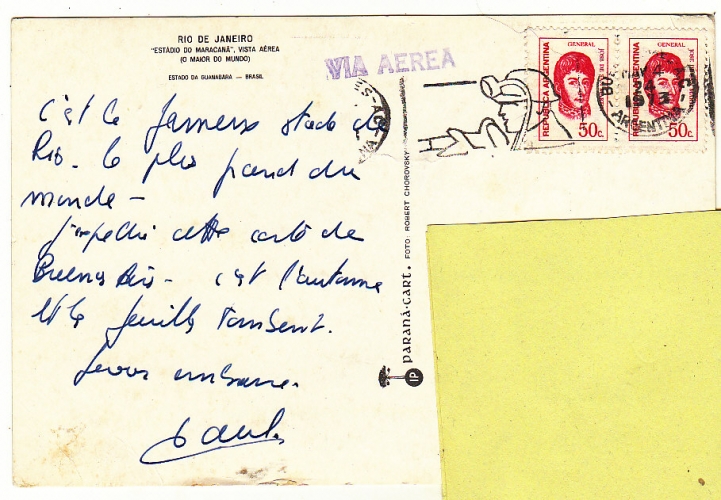 RIO DE JANEIRO
"ESTÁDIO DO MARACANÃ", VISTA AÉREA
(O MAIOR DO MUNDO)
ESTADO DA GUANABARA — BRASIL
VIA AEREA
c'est le fameux stade de
Rio. le plus grand du
monde –
j'expedie cette carte de
Buenos Aires – c'est l'automne
et les feuilles tombent.
vous embrasse.
PARANÁ-CART. FOTO: ROBERT CHOROVSKY
IP
REPUBLICA ARGENTINA
GENERAL
50c.
REPUBLICA ARGENTINA
GENERAL
50c.
24
1973
ARGENTINA